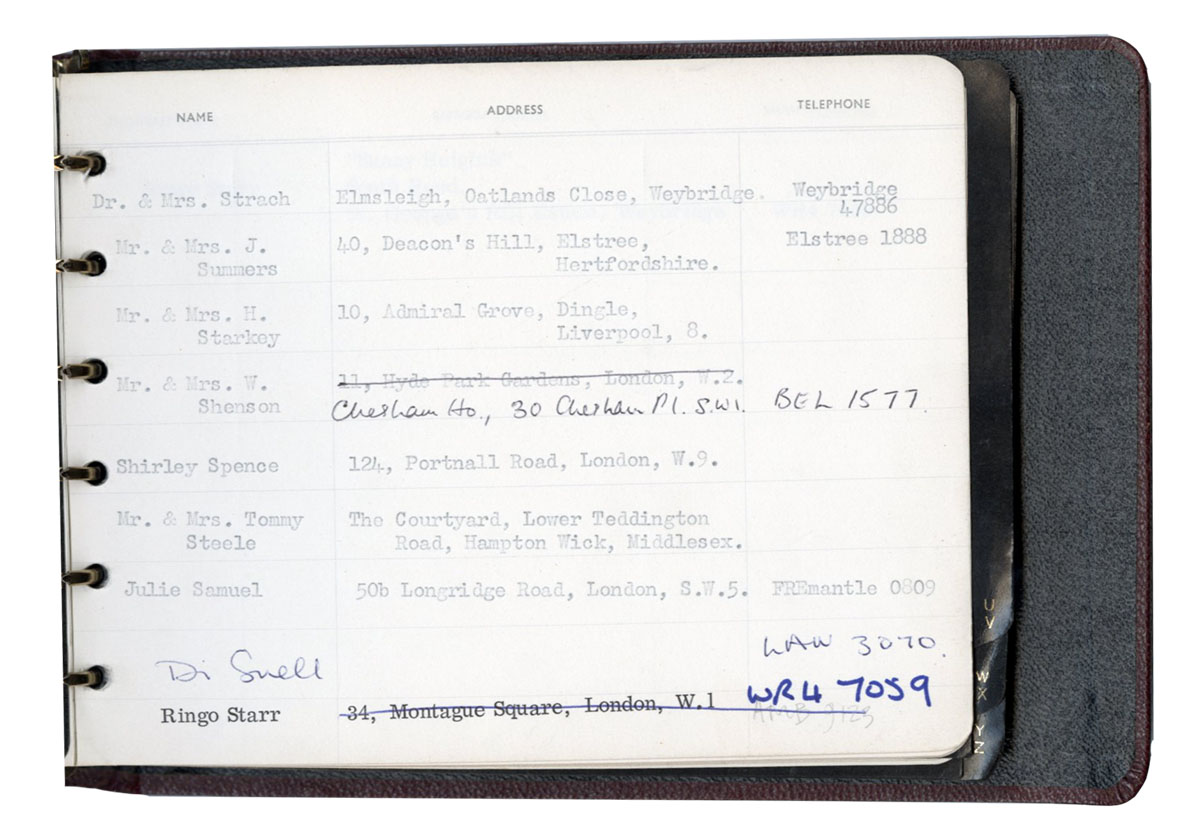 NAME ADDRESS TELEPHONE
Dr. & Mrs. Strach Elmsleigh, Oatlands Close, Weybridge. Weybridge
47886
Mr. & Mrs. J. 40, Deacon's Hill, Elstree, Elstree 1888
Summers Hertfordshire.
Mr. & Mrs. H. 10, Admiral Grove, Dingle,
Starkey Liverpool, 8.
Mr. & Mrs. W. 11, Hyde Park Gardens, London, W.2.
Shenson Chesham Ho., 30 Chesham Pl. S.W1. BEL 1577.
Shirley Spence 124, Portnall Road, London, W.9.
Mr. & Mrs. Tommy The Courtyard, Lower Teddington
Steele Road, Hampton Wick, Middlesex.
Julie Samuel 50b Longridge Road, London, S.W.5. FREmantle 0809
Di Snell LAW 3070.
WR4 7059
Ringo Starr 34, Montague Square, London, W.1
U
V
W
X
Y
Z